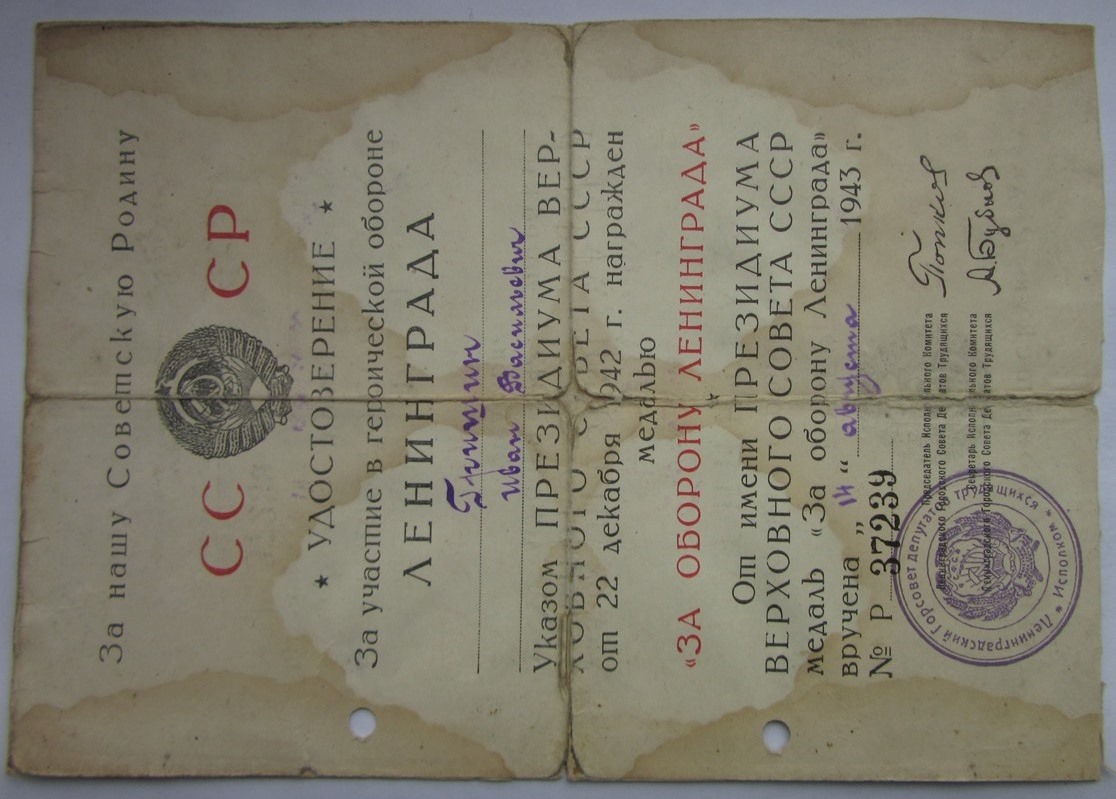 За нашу Советскую Родину
СС СР
★ УДОСТОВЕРЕНИЕ ★
За участие в героической обороне
ЛЕНИНГРАДА
Иван Васильевич
Указом ПРЕЗИДИУМА ВЕР-
ХОВНОГО СОВЕТА СССР
от 22 декабря 1942 г. награжден
медалью
«ЗА ОБОРОНУ ЛЕНИНГРАДА»
От имени ПРЕЗИДИУМА
ВЕРХОВНОГО СОВЕТА СССР
медаль «За оборону Ленинграда»
вручена „14“ августа 1943 г.
№ Р 37239
Председатель Исполнительного Комитета
Ленинградского Городского Совета Депутатов Трудящихся
Попков
Секретарь Исполнительного Комитета
Ленинградского Городского Совета Депутатов Трудящихся
А. Бубнов
Ленинградский Горсовет депутатов трудящихся ★ Исполком ★